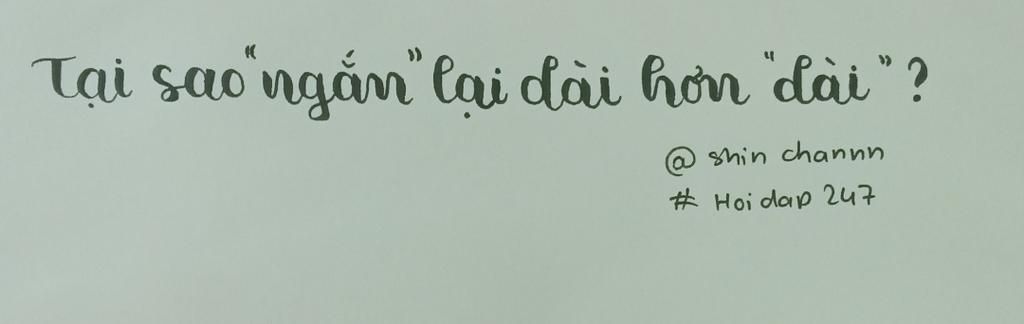 Tại sao "ngắn" lại dài hơn "dài"?
@ shin channn
# Hoidap 247